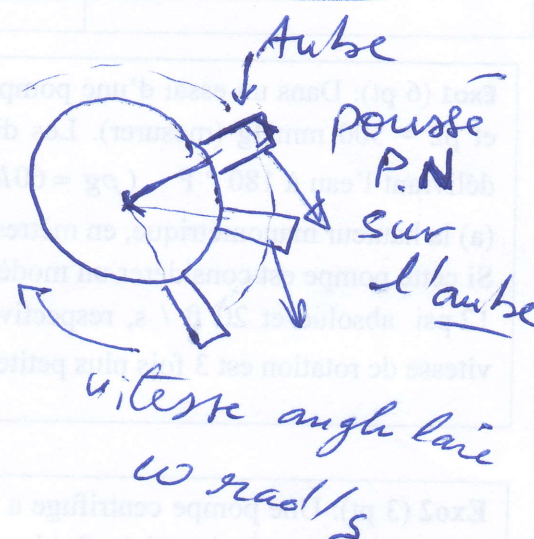 Aube
poussé
P.N
sur
l'aube
vitesse angulaire
ω rad/s
Exo1 (6 pt): Dans un essai d'une pompe
et p2
mmHg (mesurer). Les
délivrant l'eau à 180 °F
(a) la hauteur manométrique, en mètres
Si cette pompe est considérer un modèle
psi absolue et 20
/ s, respective
vitesse de rotation est 3 fois plus petite
Exo2 (3 pt)
Une pompe centrifuge a